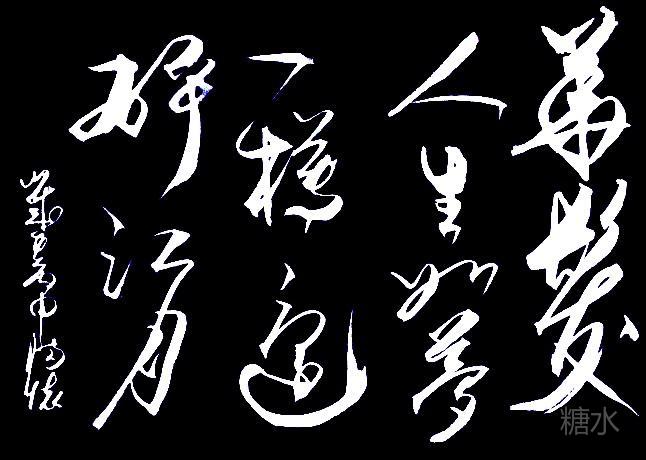 華髮
人生如夢
一樽還
酹江月
糖水